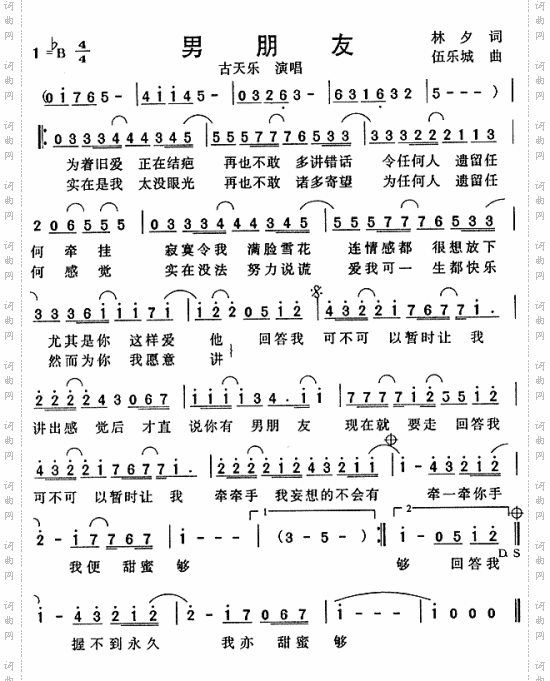 1=♭B 4/4 男朋友 林夕 词
古天乐 演唱 伍乐城 曲
(0 i 7 6 5 - | 4 i i 4 5 - | 0 3 2 6 3 - | 6 3 1 6 3 2 | 5 - - - ) |
0 3 3 3 3 4 4 4 3 4 5 | 5 5 5 5 7 7 7 6 5 3 3 | 3 3 3 3 2 2 2 1 1 3
为着旧爱 正在结疤 再也不敢 多讲错话 令任何人 遗留任
实在是我 太没眼光 再也不敢 诸多寄望 为任何人 遗留任
2 0 6 5 5 5 | 0 3 3 3 3 4 4 4 3 4 5 | 5 5 5 5 7 7 7 6 5 3 3
何 牵挂 寂寞令我 满脸雪花 连情感都 很想放下
何 感觉 实在没法 努力说谎 爱我可一 生都快乐
3 3 3 6 1 i i i 7 i | i 2 2 0 5 i 2 | 4 3 2 2 1 7 6 7 7 1.
尤其是你 这样爱 他 回答我 可不可 以暂时让 我
然而为你 我愿意 讲
2 2 2 2 2 4 3 0 2 1 | i i i i i 3 4 . i i | 7 7 7 7 i 2 5 5 i 2
讲出感 觉后 才直 说你有 男朋 友 现在就 要走 回答我
4 3 2 2 1 7 6 7 7 1. | 2 2 2 2 1 2 4 3 2 1 1 | i - 4 3 2 1
可不可 以暂时让 我 牵牵手 我妄想的不会有 牵一牵你手
2 - i 7 7 6 7 | i - - - | (3 - 5 - ) :| i - 0 5 i 2
1
2
D.S
我便 甜蜜 够 够 回答我
i - 4 3 2 1 2 | 2 - i 7 0 6 7 | i - - - | i 0 0 0
握不到永久 我亦 甜蜜 够
词曲网
词曲网
词曲网
词曲网
词曲网
词曲网
词曲网
词曲网
词曲网
词曲网